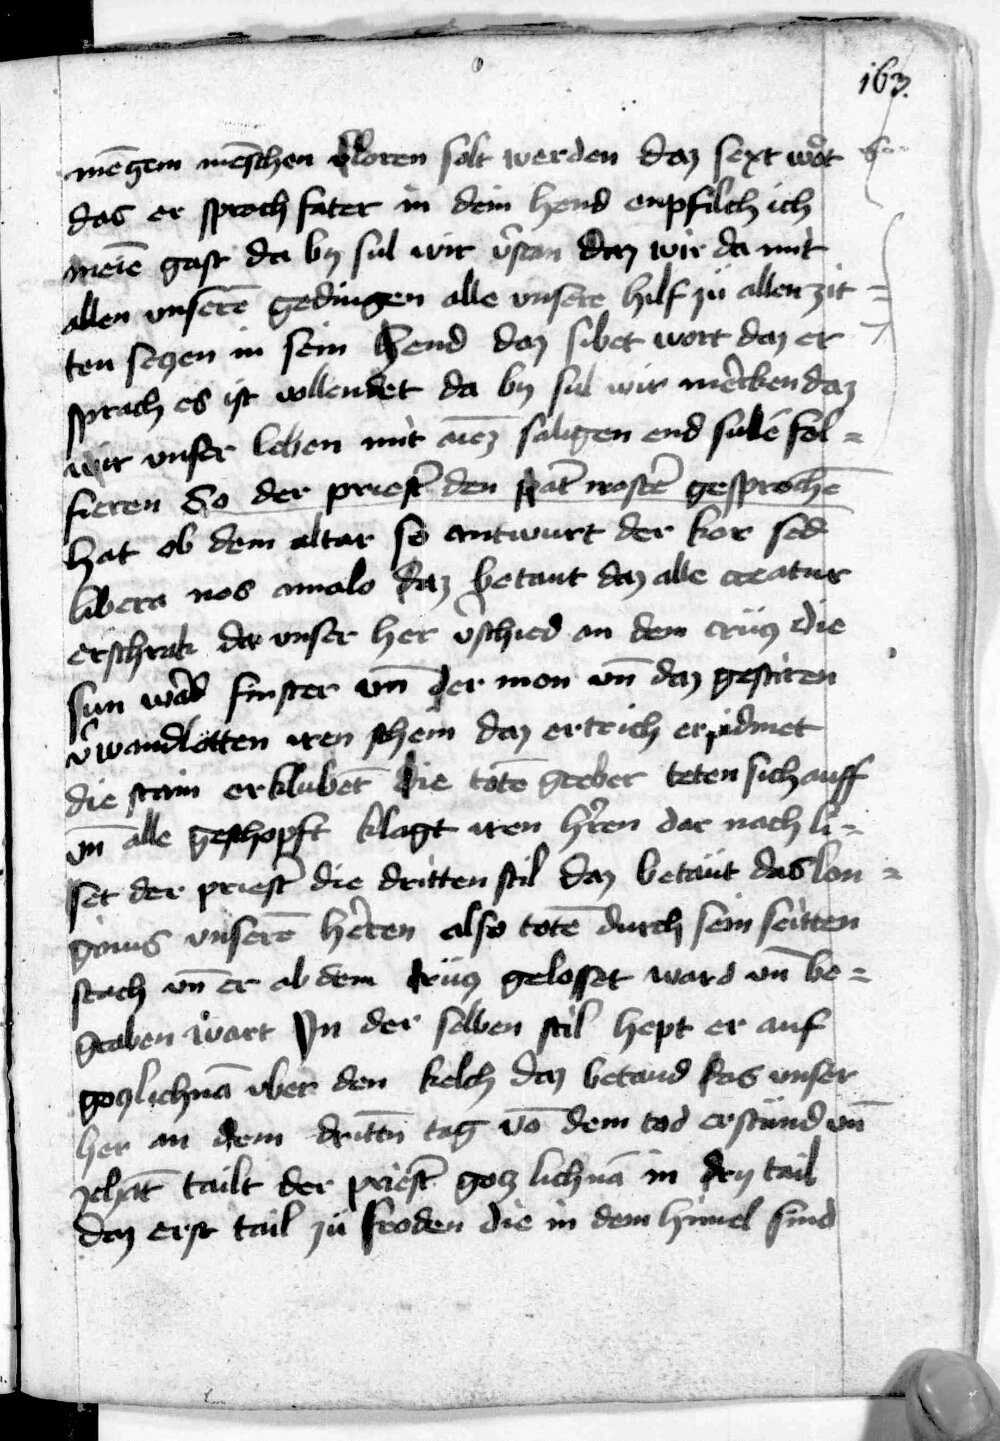 163.
mēgem mēschen v̄loren solt werden daz sext wort
das er sprach fater in dein hend enpfilch ich
meiē gast da by sul wir v̄stan daz wir da mit
allen vnserē gedingen alle vnsere hilf zü allen zit =
ten seczen in sein hend daz sibet wort daz er
sprach es ist vollendet da by sul wir mercken daz
wir vnser leben mit aiez saligen end sulē fol =
fieren So der priest den pat nost gesprochē
hat ob dem altar so antwurt der kor sed
libera nos amalo daz betaut daz alle creatur
erschrak da vnser her v̄schied an dem crücz die
sun ward finster vn̄ der mon vn̄ daz gestiren
v̄wandlotten iren schein daz ertrich eripdmet
die stain erklubet̄ die totē greber teten sich auff
vn̄ alle geschopft klagt iren h̄ren dar nach li =
set der priest die dritten stil daz betüt das lon =
ginus vnserē heren also totē durch sein seitten
stach vn̄ er ab dem krücz gelosset ward vn̄ be =
graben wart In der selben stil hept er auf
goczlichnā vber den kelch daz betaud das vnser
her an dem drittn̄ tag vō dem tod erstünd vn̄
zehāt tailt der priest gocz lichnā in dry tail
daz erst tail zü froden die in dem himel sind